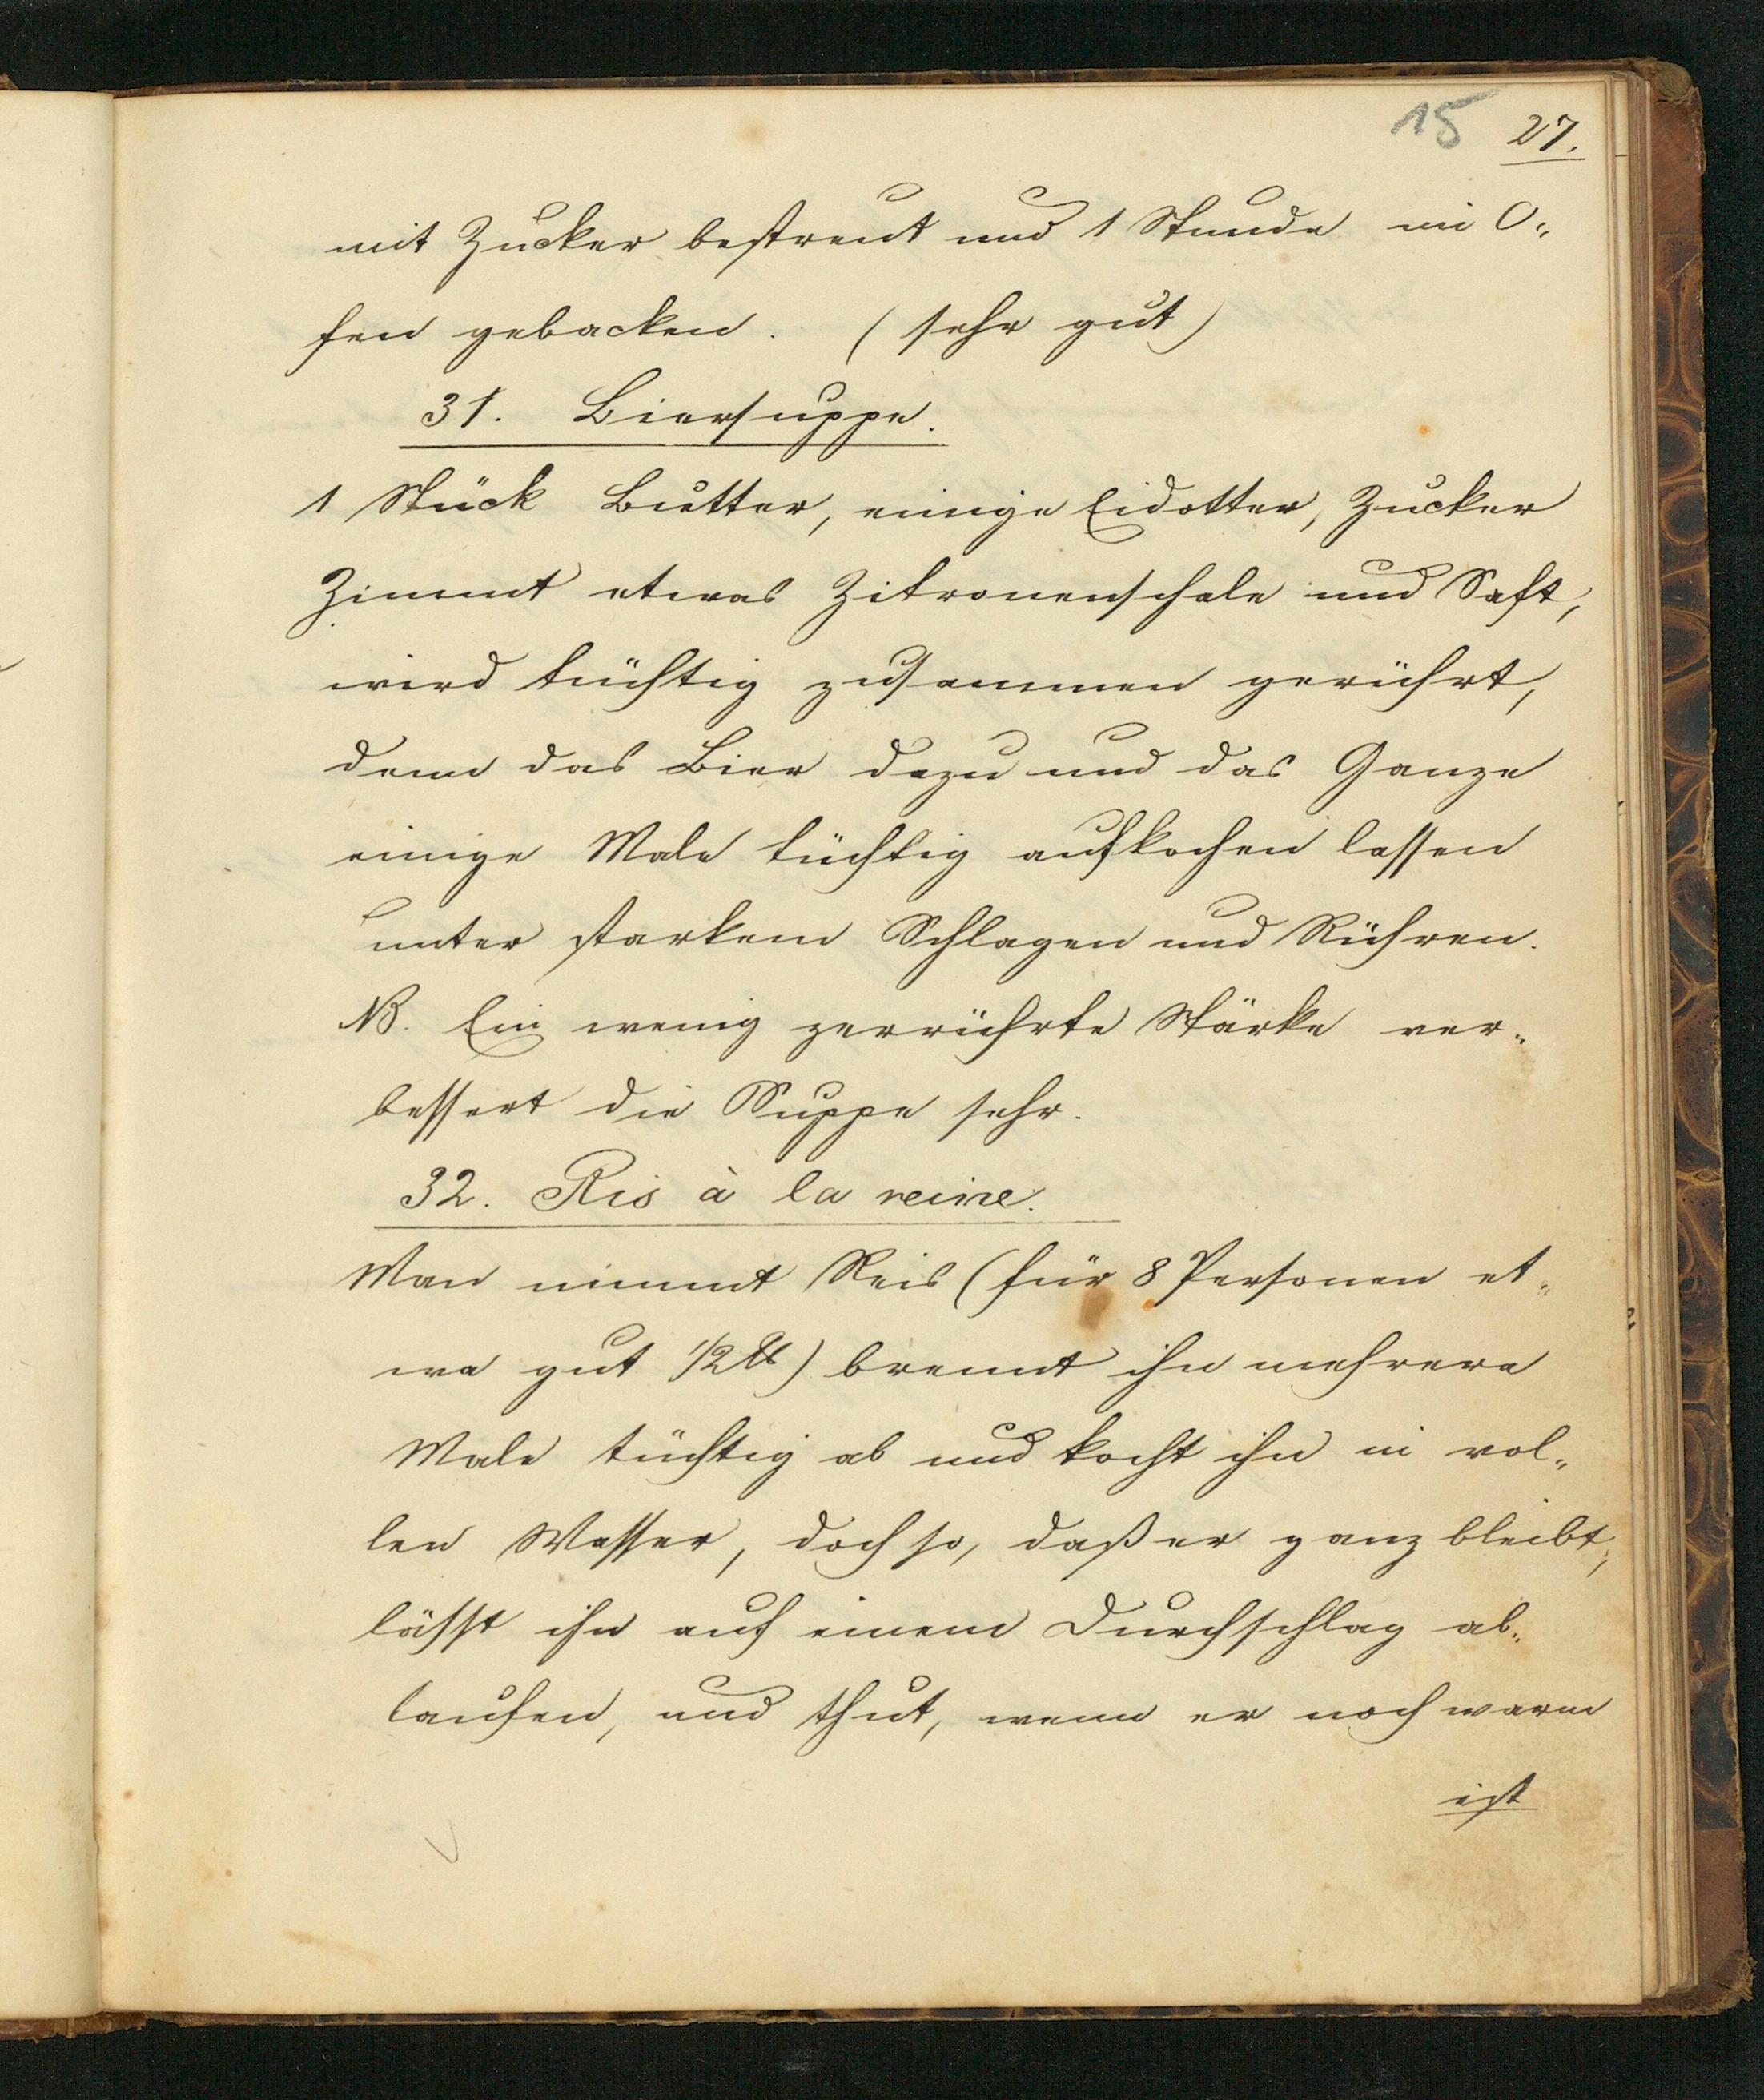 15 27.
mit Zucker bestreut und 1 Stunde im O-
fen gebacken. (sehr gut)
31. Biersuppe.
1 Stück Butter, einige Eidotter, Zucker
Zimmt etwas Zitronenschale und Saft,
wird tüchtig zusammen gerührt,
dann das Bier dazu und das Ganze
einige Male tüchtig aufkochen lassen
unter starkem Schlagen und Rühren.
NB. Ein wenig zerrührte Stärke ver-
bessert die Suppe sehr.
32. Ris à la reine.
Man nimmt Reis (für 8 Personen et-
wa gut 1/2 ℔) brennt ihn mehrere
Male tüchtig ab und kocht ihn in vol-
len Wasser, doch so, daß er ganz bleibt,
lässt ihn auf einem Durchschlag ab-
laufen, und thut, wenn er noch warm
ist